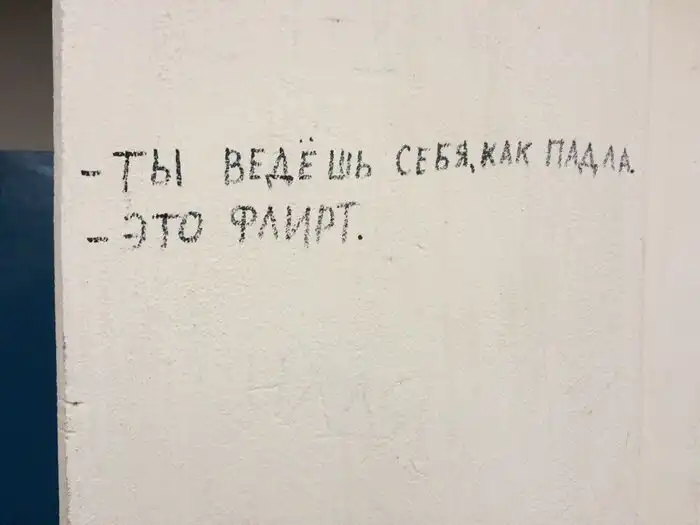 - ТЫ ВЕДЁШЬ СЕБЯ, КАК ПАДЛА.
- ЭТО ФЛИРТ.